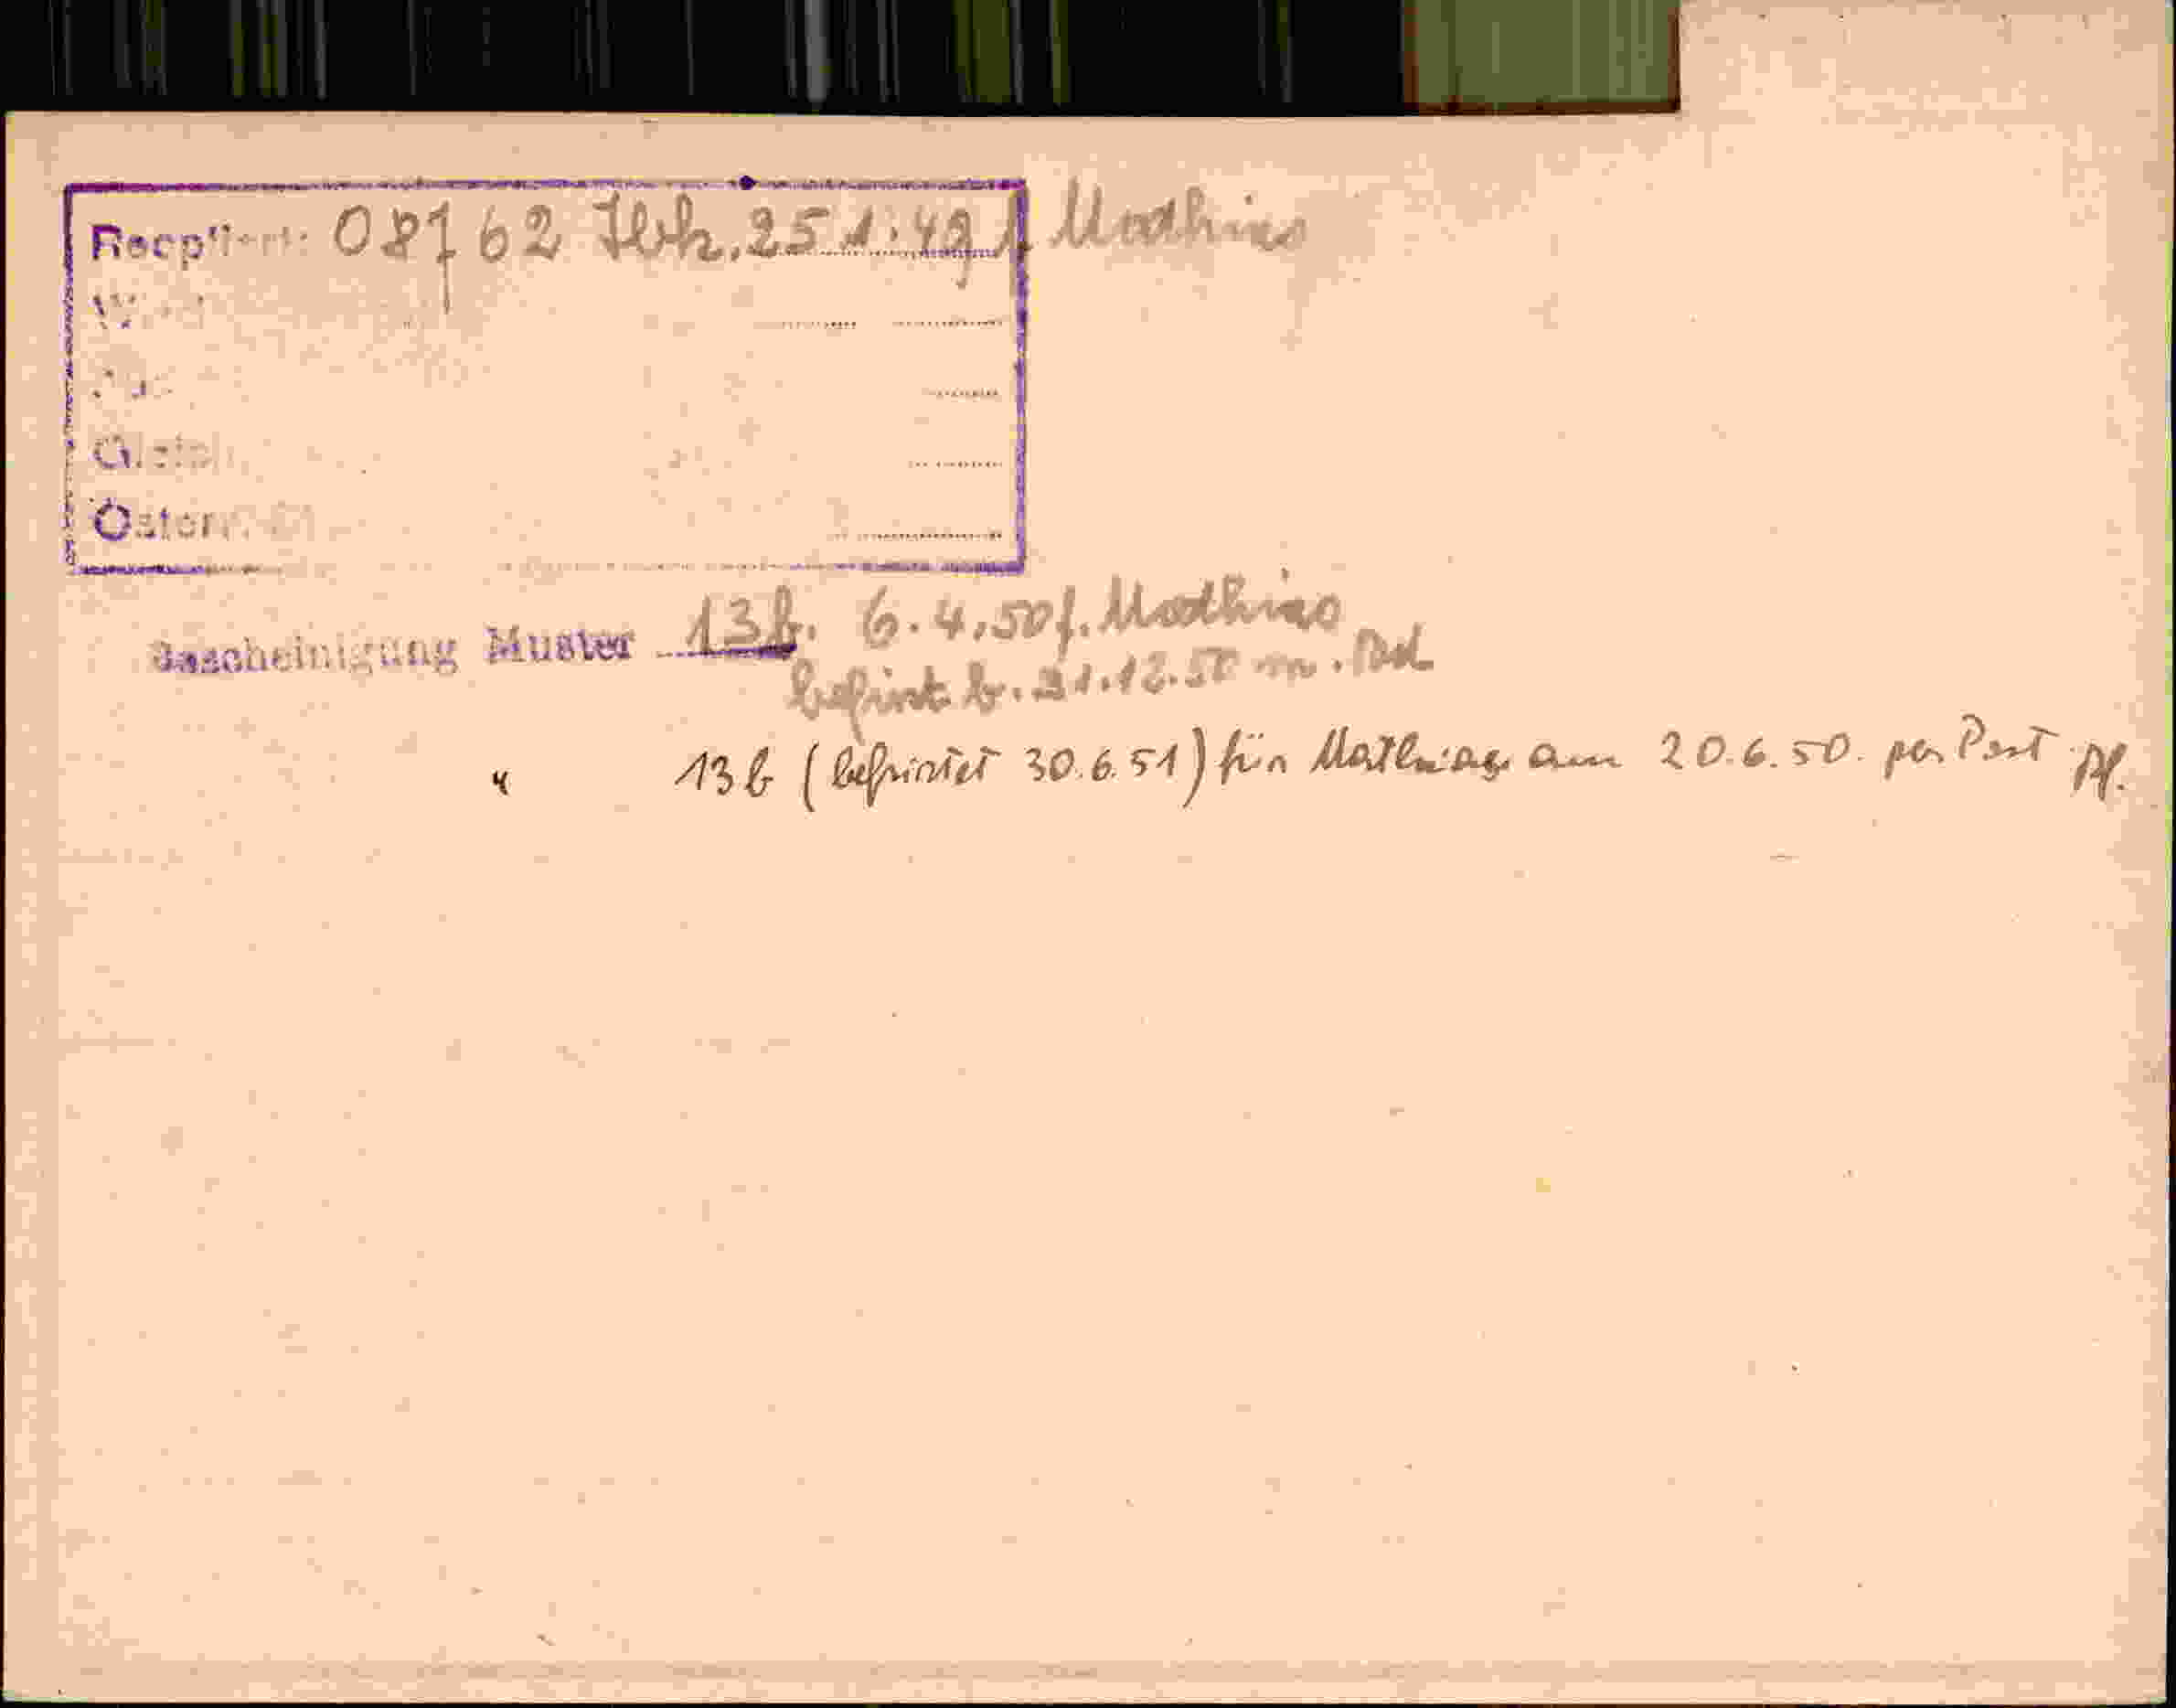 Recptiert: 08762 Ibk. 25.1.49 f. Mathias
Österr.
Bescheinigung Muster 13b. 6.4.50 f. Mathias
befrist. b. 31.12.50
" 13b (befristet 30.6.51) für Mathias am 20.6.50. per Post